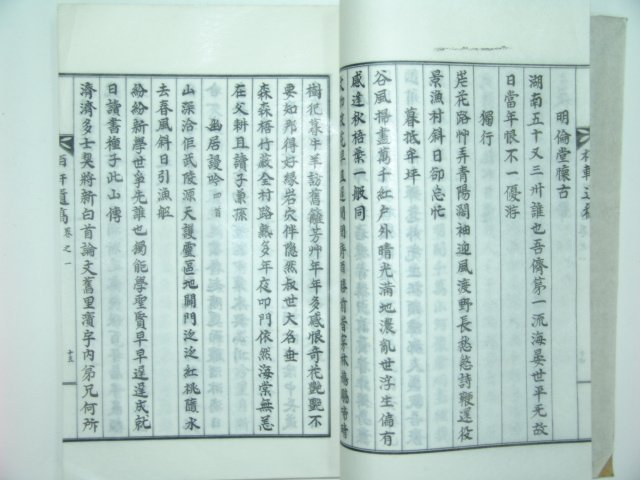 明倫堂懷古
湖南五十又三州誰也吾儕第一流海晏世平无故
日當年恨不一優游
獨行
岸花路艸弄青陽闊袖迎風渡野長愁慾詩鞭遲役
景漁村斜日卻忘忙
暮抵牟坪
谷風揚畫萬千紅戶外晴光滿地濃亂世浮生偏有
感逢秋梧葉一般同
樹犯暮牛羊訪舊籬芳艸年年多感恨奇花艶艶不
要如那得好緣岩穴伴隱然叔世大名垂
森森梧竹蔽全村路熟多年夜叩門依然海棠無恙
在父耕且讀子兼孫
幽居謾吟 四首
山深洽佢武陵源天護靈區地開門泛泛紅桃隨水
去春風斜日引漁艇
紛紛新學世爭先誰也獨能學聖賢早早遲遲成就
日讀書種子此山傳
濟濟多士契將新白首論文舊里濱宇內第兄何所
栢軒遺稿 卷之一
十三